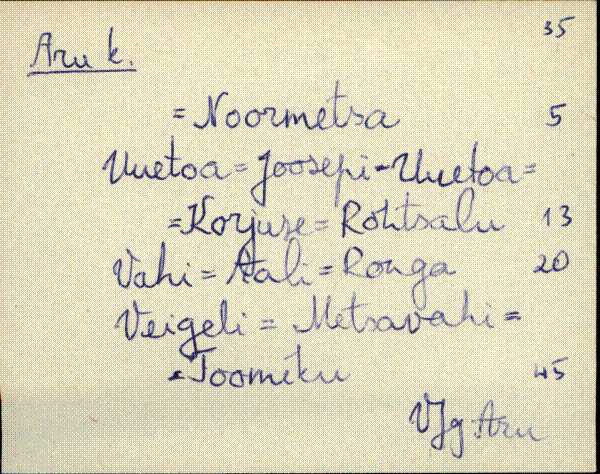 35
Aru k.
= Noormetsa 5
Uuetoa = Joosepi - Uuetoa =
= Korjuse = Rohtsalu 13
Vahi = Aali = Ronga 20
Veigeli = Metsavahi =
= Toomiku 45
VJg Aru